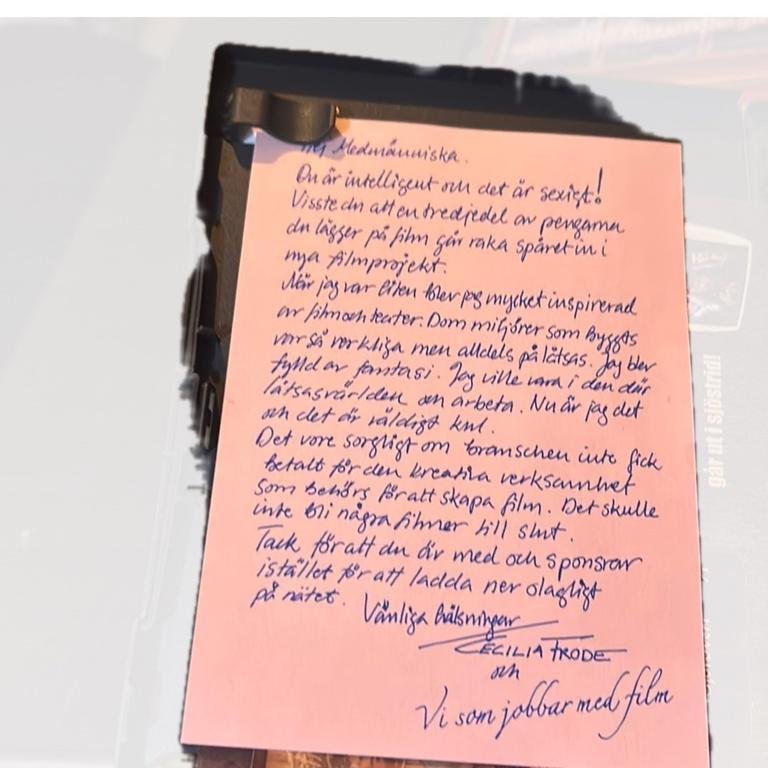 Hej Medmänniska.
Du är intelligent och det är sexigt!
Visste du att en tredjedel av pengarna
du lägger på film går raka spåret in i
nya filmprojekt.
När jag var liten blev jag mycket inspirerad
av film och teater. Dom miljöer som byggts
var så verkliga men alldels på låtsas. Jag blev
fylld av fantasi. Jag ville vara i den där
låtsasvärlden och arbeta. Nu är jag det
och det är väldigt kul.
Det vore sorgligt om branschen inte fick
betalt för den kreativa verksamhet
som behövs för att skapa film. Det skulle
inte bli några filmer till slut.
Tack för att du är med och sponsrar
istället för att ladda ner olagligt
på nätet. Vänliga hälsningar
CECILIA FRODE
och
Vi som jobbar med film
går ut i sjöstrid!